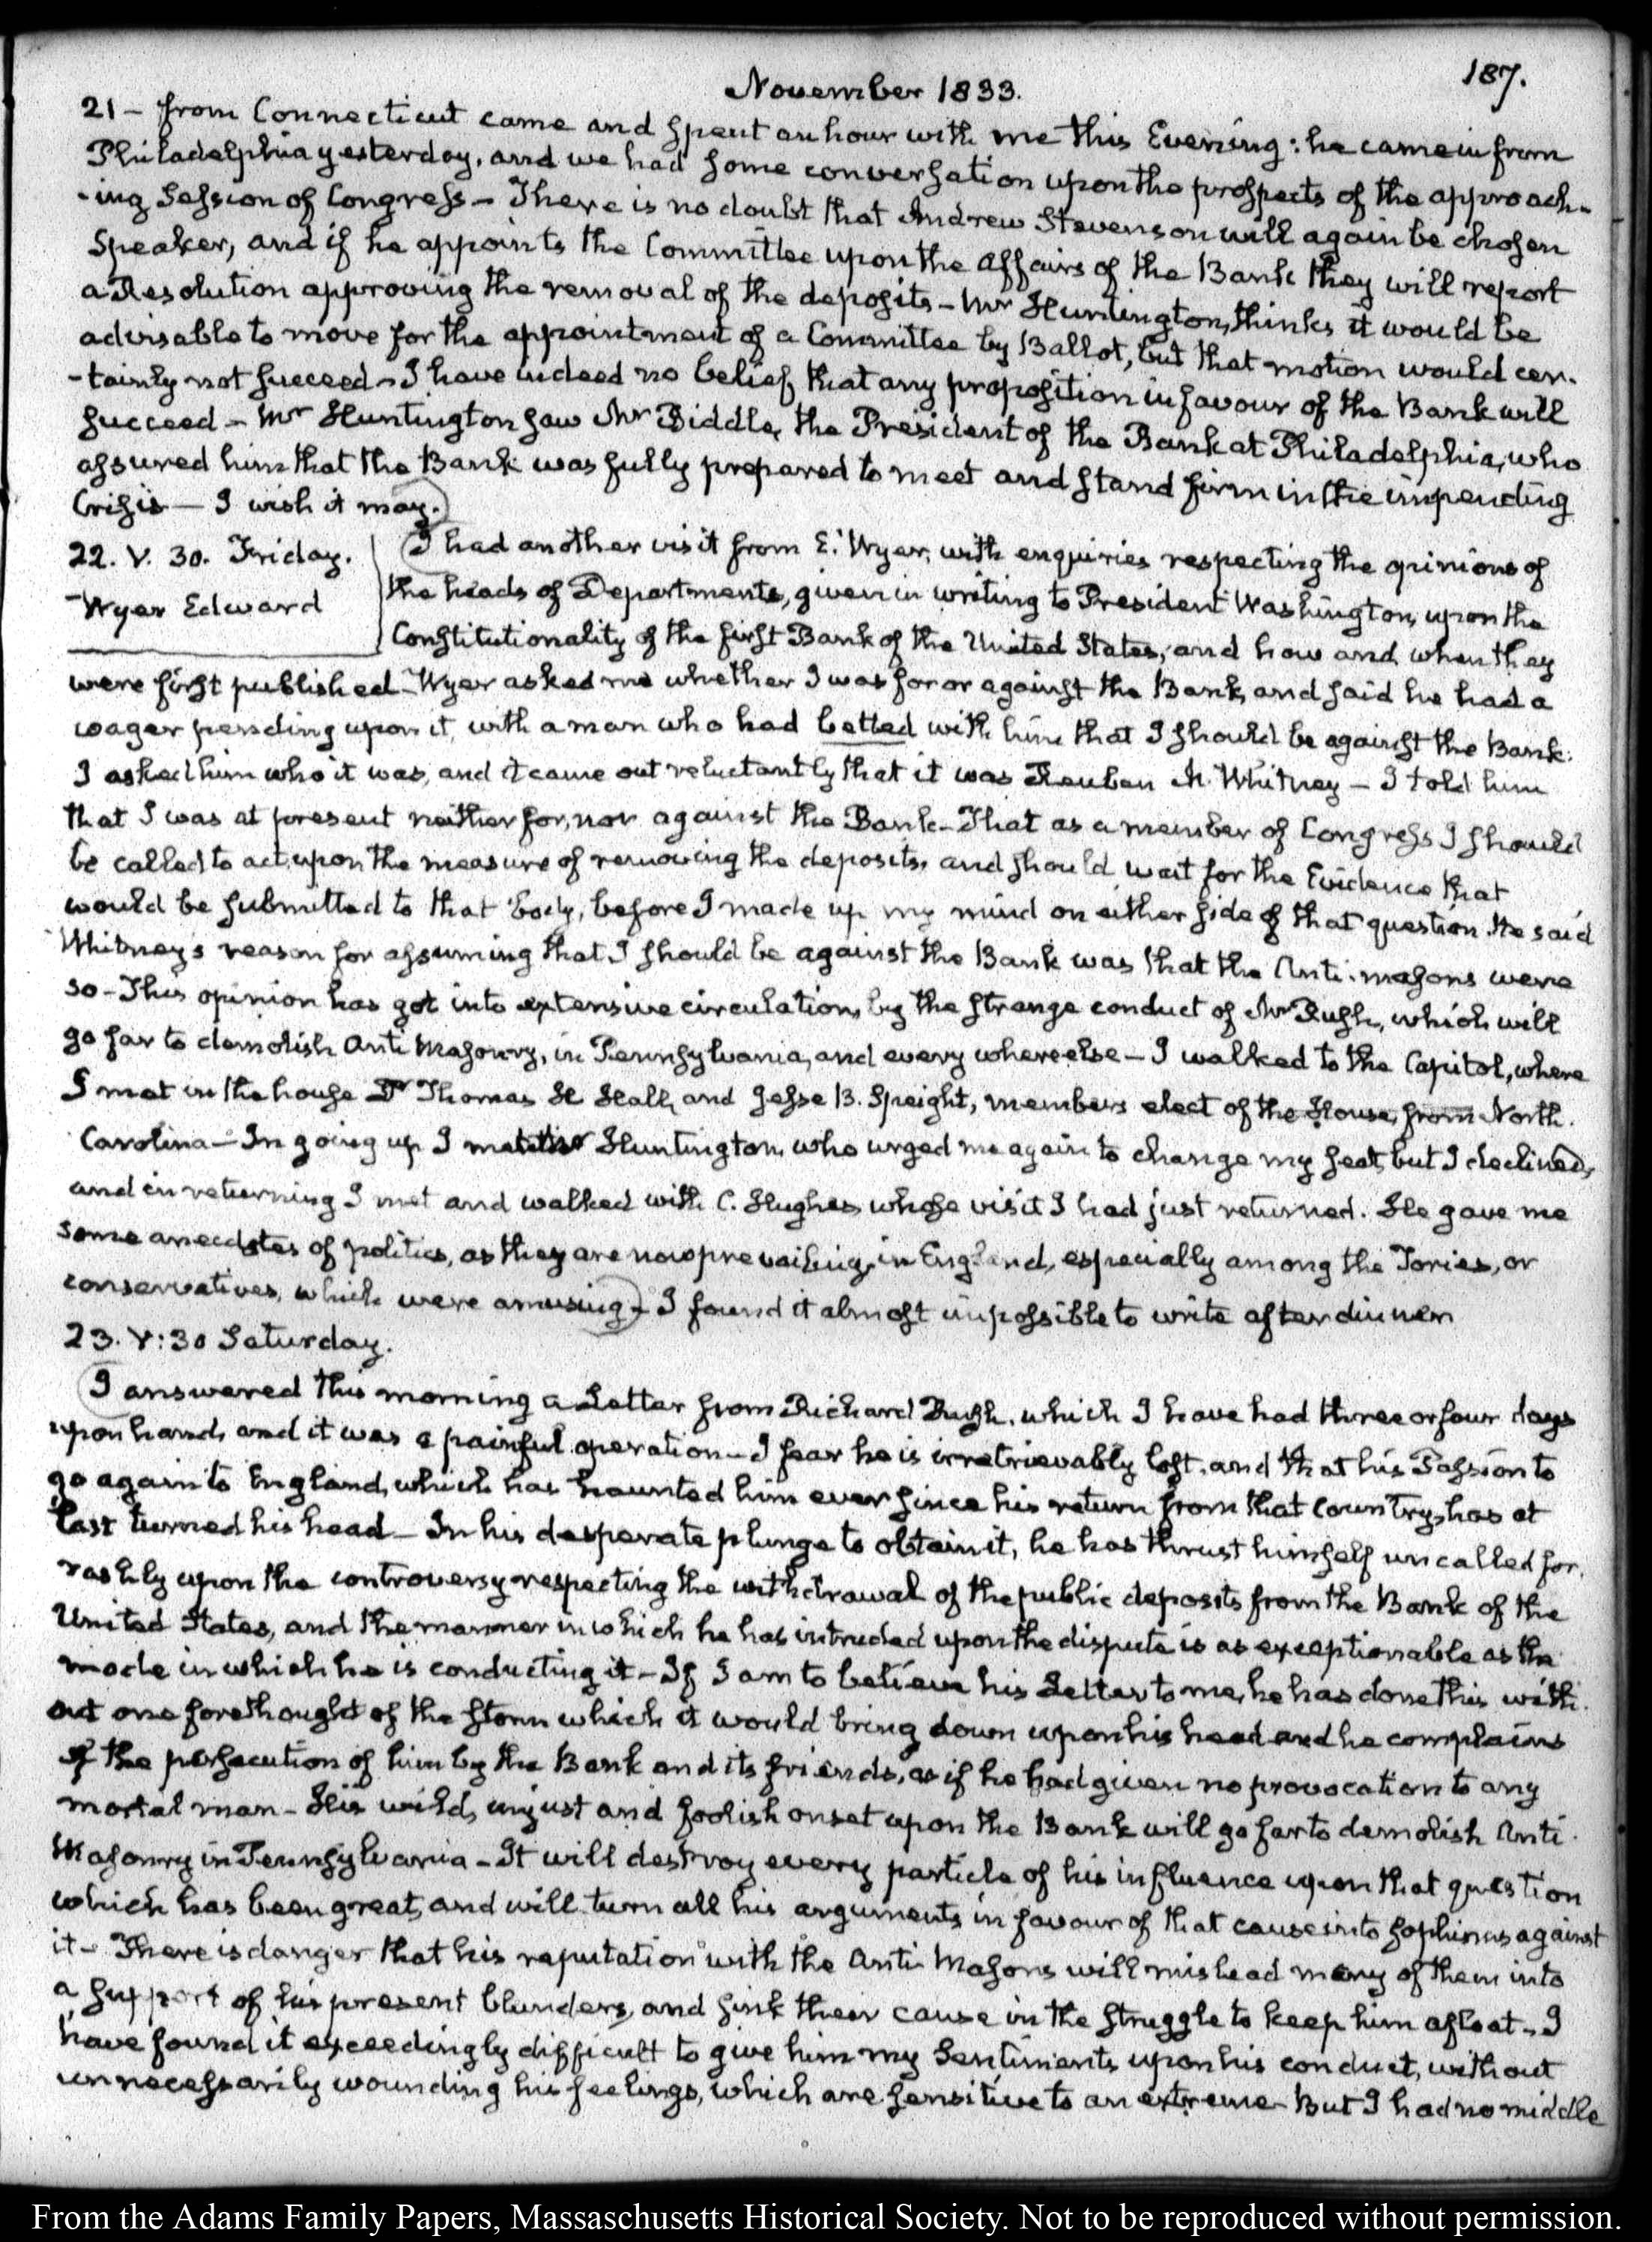 187.
November 1833.
21 - from Connecticut came and spent an hour with me this Evening: he came in from
Philadelphia yesterday, and we had some conversation upon the prospects of the approach-
-ing Session of Congress - There is no doubt that Andrew Stevenson will again be chosen
Speaker, and if he appoints the Committee upon the affairs of the Bank they will report
a Resolution approving the removal of the deposits - Mr Huntington, thinks it would be
advisable to move for the appointment of a Committee by Ballot, but that motion would cer-
-tainly not succeed - I have indeed no belief that any proposition in favour of the Bank will
succeed - Mr Huntington saw Mr Biddle, the President of the Bank at Philadelphia, who
assured him that the Bank was fully prepared to meet and stand firm in the impending
Crisis - I wish it may.
22. V. 30. Friday.
Wyer Edward
I had another visit from E. Wyer, with enquiries respecting the opinions of
the heads of Departments, given in writing to President Washington, upon the
Constitutionality of the first Bank of the United States, and how and when they
were first published - Wyer asked me whether I was for or against the Bank, and said he had a
wager pending upon it, with a man who had betted with him that I should be against the Bank:
I asked him who it was, and it came out reluctantly that it was Reuben M. Whitney - I told him
that I was at present neither for, nor against the Bank - That as a member of Congress I should
be called to act upon the measure of removing the deposits, and should wait for the Evidence that
would be submitted to that body, before I made up my mind on either side of that question. He said
Whitney's reason for assuming that I should be against the Bank was that the Anti-masons were
so - This opinion has got into extensive circulation, by the strange conduct of Mr Rush, which will
go far to demolish Anti Masonry, in Pennsylvania, and every where else - I walked to the Capitol, where
I met in the house Dr Thomas H Hall, and Jesse B. Speight, members elect of the House, from North
Carolina - In going up I met Mr Huntington, who urged me again to change my seat, but I declined,
and in returning I met and walked with C. Hughes whose visit I had just returned. He gave me
some anecdotes of politics, as they are now prevailing, in England, especially among the Tories, or
conservatives, which were amusing - I found it almost impossible to write after dinner
23. V:30 Saturday.
I answered this morning a Letter from Richard Rush, which I have had three or four days
upon hand, and it was a painful operation - I fear he is irretrievably lost, and that his Passion to
go again to England, which has haunted him ever since his return from that Country, has at
last turned his head - In his desperate plunge to obtain it, he has thrust himself uncalled for,
rashly upon the controversy respecting the withdrawal of the public deposits from the Bank of the
United States, and the manner in which he has intruded upon the dispute is as exceptionable as the
mode in which he is conducting it - If I am to believe his Letter to me, he has done this with-
out one forethought of the storm which it would bring down upon his head and he complains
of the persecution of him by the Bank and its friends, as if he had given no provocation to any
mortal man - His wild, unjust and foolish onset upon the Bank will go far to demolish Anti-
Masonry in Pennsylvania - It will destroy every particle of his influence upon that question
which has been great, and will turn all his arguments in favour of that cause into sophisms against
it - There is danger that his reputation with the Anti-Masons will mislead many of them into
a support of his present blunders, and sink their cause in the struggle to keep him afloat - I
have found it exceedingly difficult to give him my Sentiments upon his conduct, without
unnecessarily wounding his feelings, which are sensitive to an extreme - But I had no middle
From the Adams Family Papers, Massaschusetts Historical Society. Not to be reproduced without permission.